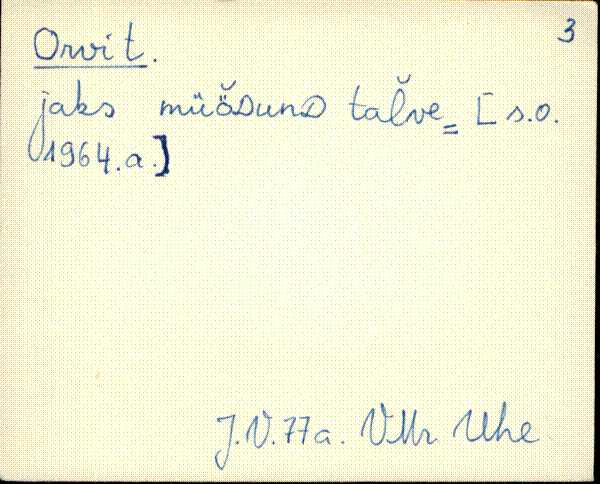 3
Orvit.
jaks müö̆ᴅunᴅ tal̆ve͇ [s.o.
1964.a.]
J.V.77a. VMr Uhe